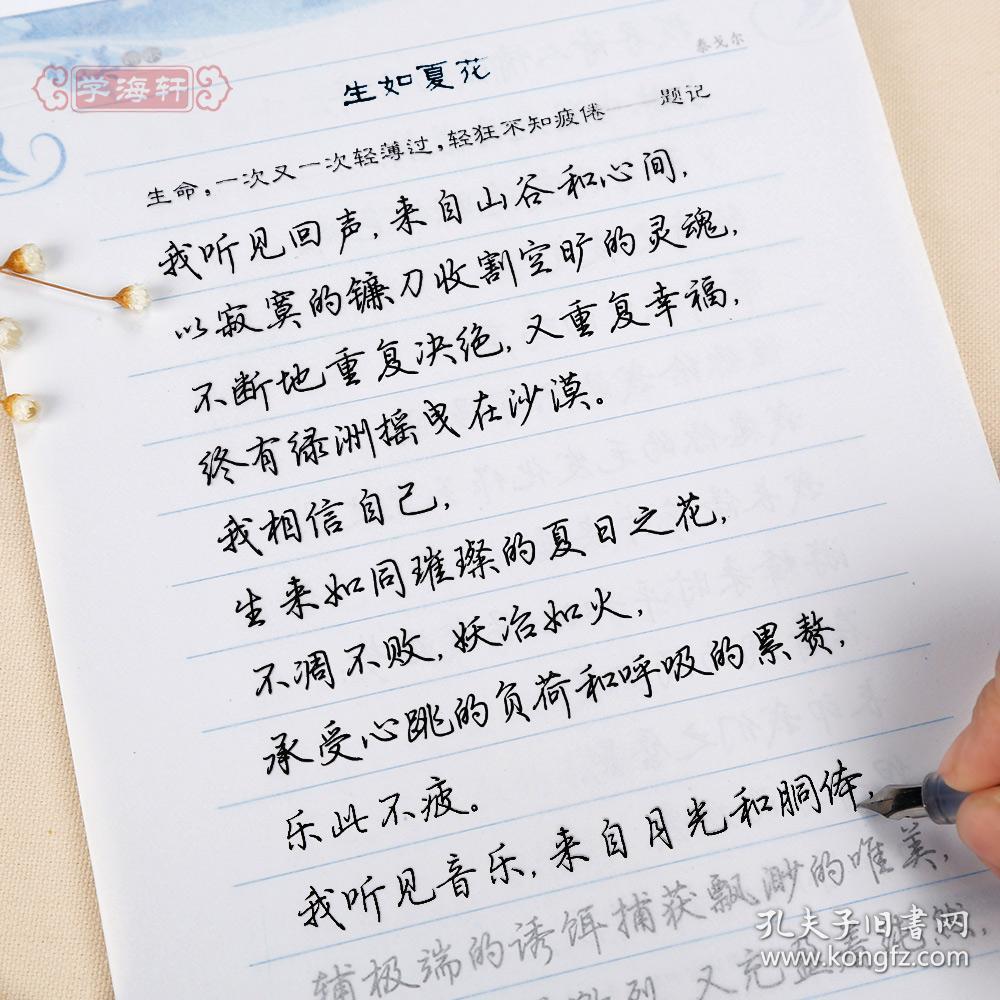 学海轩
泰戈尔
生如夏花
题记
生命，一次又一次轻薄过，轻狂不知疲倦
我听见回声，来自山谷和心间，
以寂寞的镰刀收割空旷的灵魂，
不断地重复决绝，又重复幸福，
终有绿洲摇曳在沙漠。
我相信自己，
生来如同璀璨的夏日之花，
不凋不败，妖冶如火，
承受心跳的负荷和呼吸的累赘，
乐此不疲。
我听见音乐，来自月光和胴体，
辅极端的诱饵捕获飘渺的唯美，
又充盈
孔夫子旧书网
www.kongfz.com